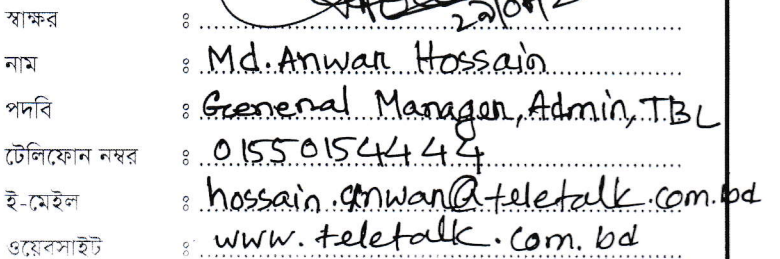 স্বাক্ষর :
নাম : Md. Anwar Hossain
পদবি : General Manager, Admin, TBL
টেলিফোন নম্বর : 01550154444
ই-মেইল : hossain.anwar@teletalk.com.bd
ওয়েবসাইট : www.teletalk.com.bd